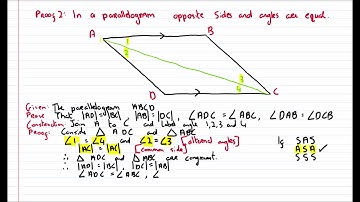 Proof 2: In a parallelogram opposite sides and angles are equal.
A
B
1
2
3
4
D
C
Given: The parallelogram ABCD
Prove That |AD|=|BC|, |AB|=|DC|, ∠ADC=∠ABC, ∠DAB=∠DCB
Construction: Join A to C and label angle 1,2,3 and 4
Proof: Consider △ADC and △ABC
∠1=∠4 and ∠2=∠3 [alternal angles]
|AC|=|AC| [common side]
∴ △ADC and △ABC are congruent.
∴ |AD|=|BC|, |DC|=|AB|
∠ADC=∠ABC, ∠
SAS
ASA ✓
SSS